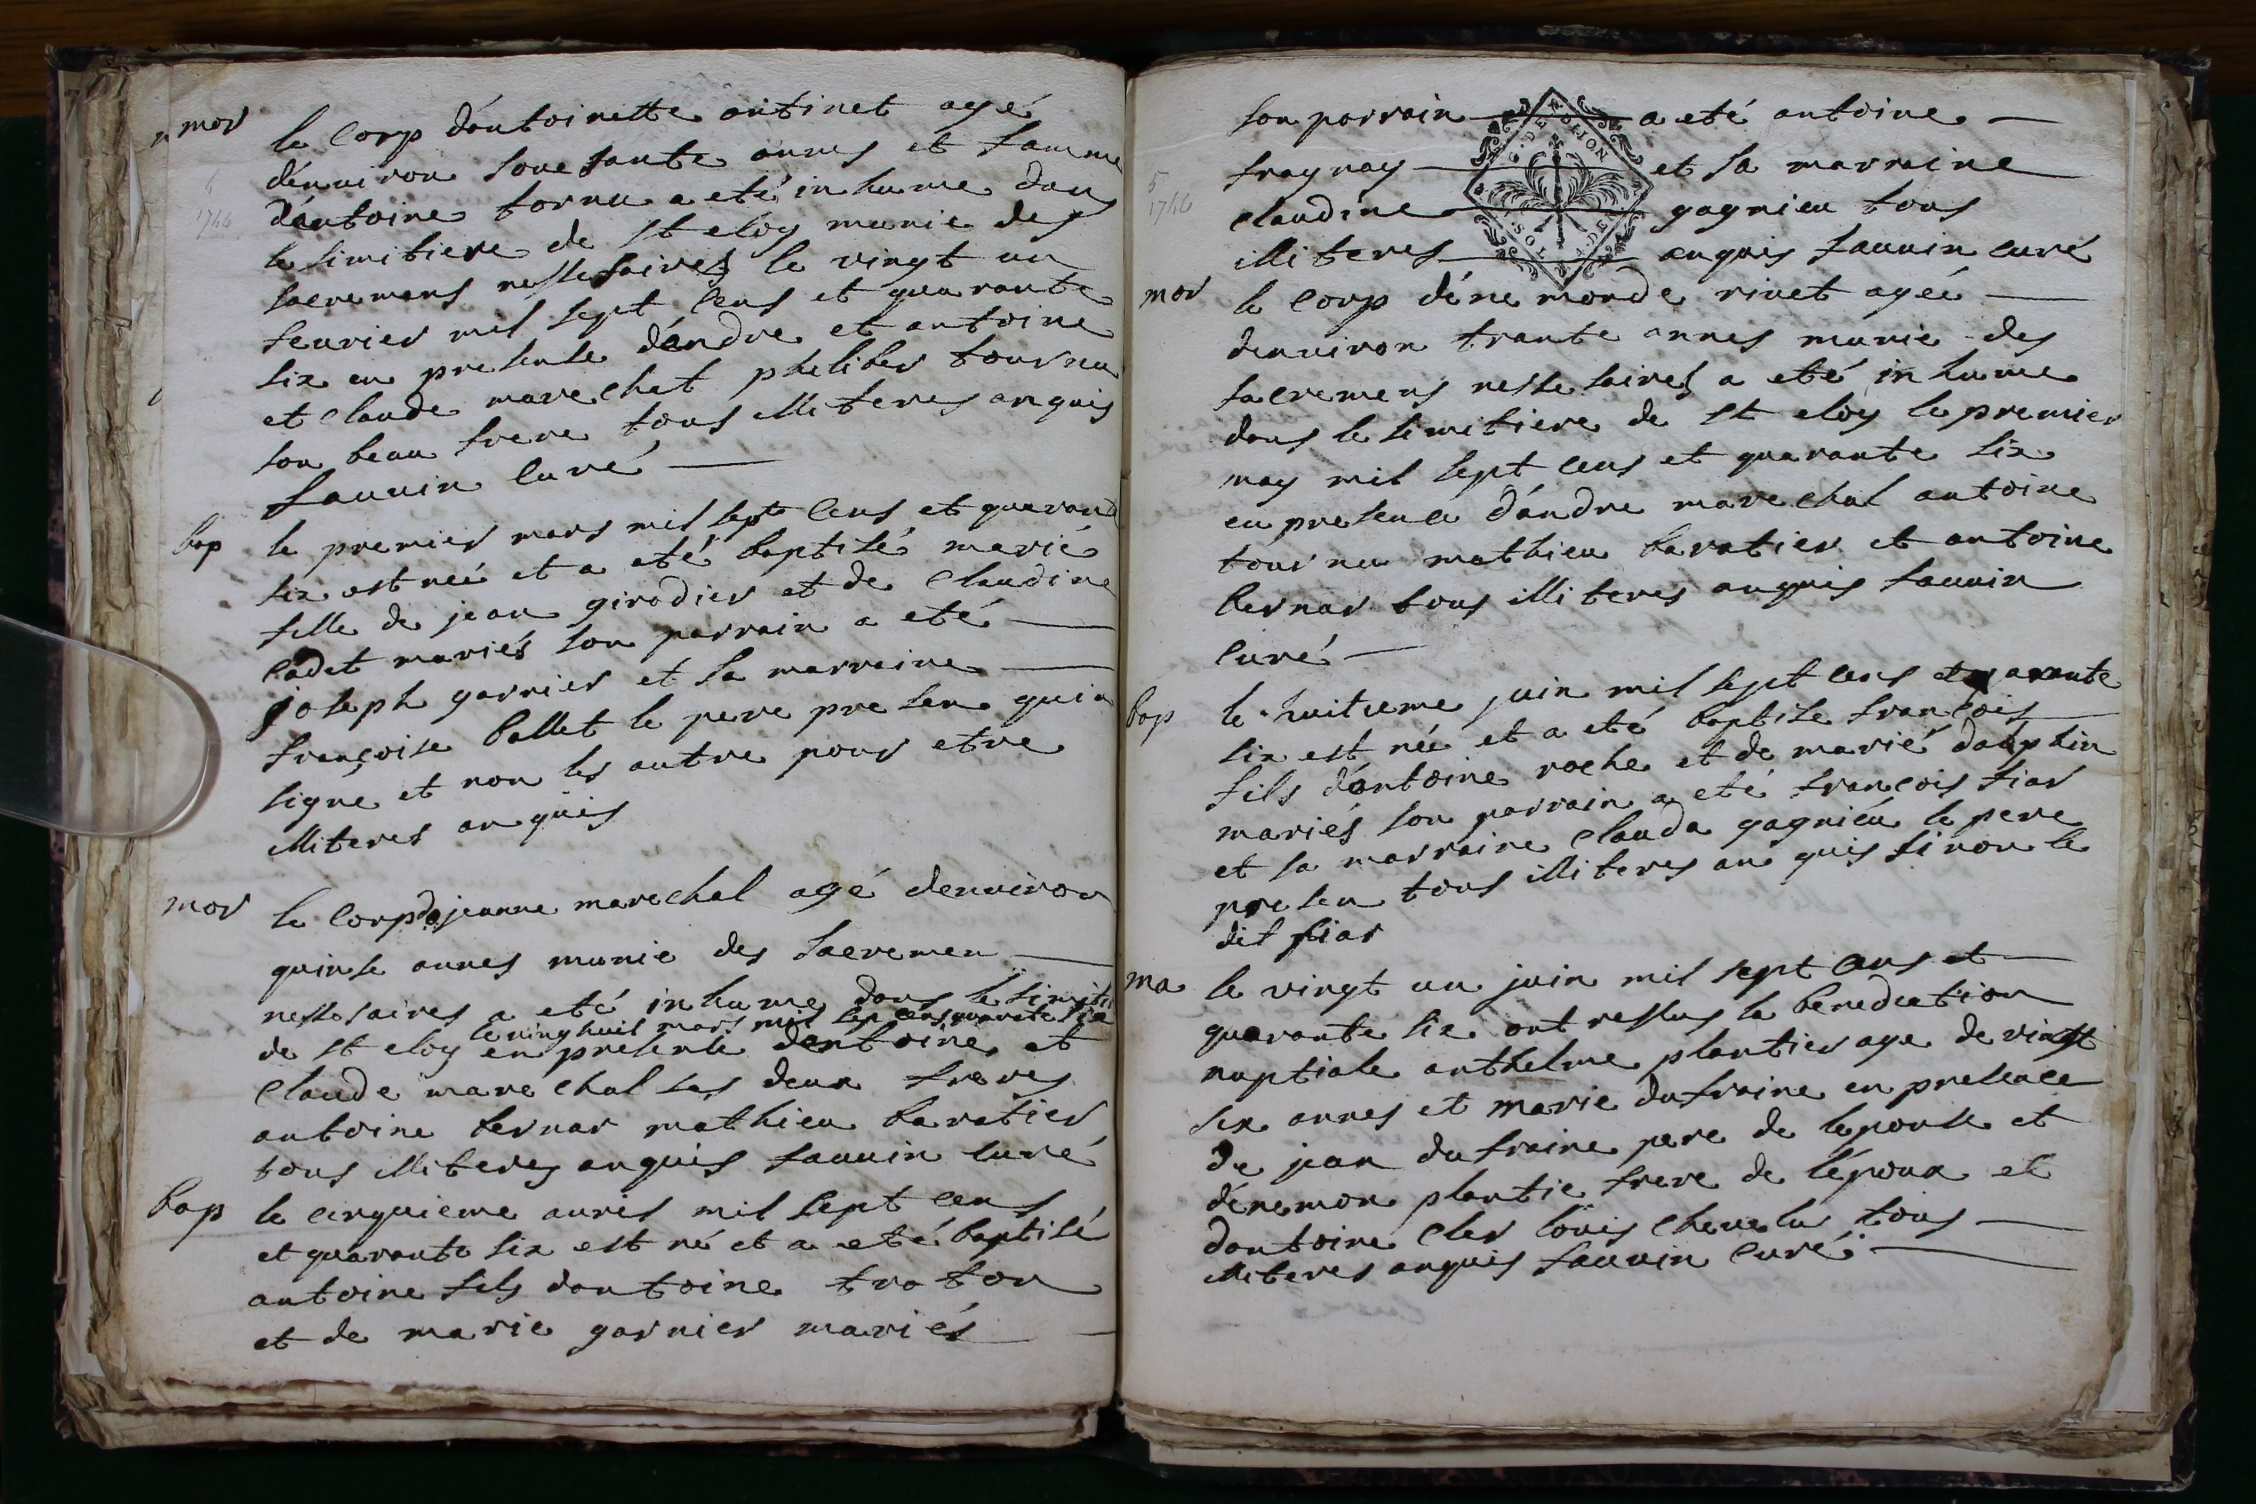 mor
le Corp d'antoinette antinet agé
d'enuiron souesante annes et famme
d'antoine tornu a eté inhume dans
le simitiere de st eloy munie des
sacremens nessesaires le vingt un
feurier mil sept Cens et quarante
six en presense d'andre et antoine
et claude marechat pheliber tournu
son beau frere tous illiteres anquis
fauuin Curé
bap
le premier mars mil sept Cens et quarante
six est neé et a eté baptisé marie
fille de jean girodier et de Claudine
Cadet mariés son parrain a eté
joseph garnier et sa marraine
françoise ballet le pere presen qui a
signe et non les autre pour etre
illiteres anquis
mor
le Corp de jeanne marechal agé denuiron
quinse annes munie des sacremen
nessesaires a eté inhume dans le simitie
le ving huit mars mil sep cens quarate six
de st eloy en presense dantoine et
Claude marechal ses deux freres
antoine bernar mathieu baratier
tous illiteres anquis fauuin curé
bap
le cinquieme auril mil sept cens
et quarante six est né et a eté baptisé
antoine fils dantoine traton
et de marie garnier mariés
5
1746
son parrain a eté antoine
fragnay et sa marraine
claudine gagnieu tous
illiteres anquis fauuin curé
G. DE DIJON
SOL 4. DE
mor
le Corp d'enemonde rivet ageé
denuiron trante annes munie des
sacremens nessesaires a eté inhume
dans le simetiere de st eloy le premier
may mil sept cens et quarante six
en presence d'andre marechal antoine
tournu mathieu baratier et antoine
bernar tous illiteres anquis fauuin
curé
bap
le huitieme juin mil sept cens et quarante
six est neé et a eté baptise françois
fils d'antoine roche et de marie dauphin
mariés son parrain a eté françois fiar
et sa marraine clauda gagnieu le pere
presen tous illiteres an quis si non le
dit fiar
ma
le vingt un juin mil sept cens et
quarante six ont ressus la benediction
nuptiale anthelme plantier age de vingt
six annes et marie dufraine en presence
de jean dufraine pere de lepouse et
d'enemon plantie frere de l'époux et
dantoine cler louis chevelu tous
illiteres anquis fauuin curé